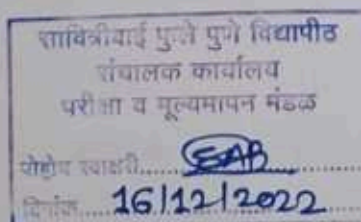 सावित्रीबाई फुले पुणे विद्यापीठ
संचालक कार्यालय
परीक्षा व मूल्यमापन मंडळ
पोहोच स्वाक्षरी..................
दिनांक.....16/12/2022